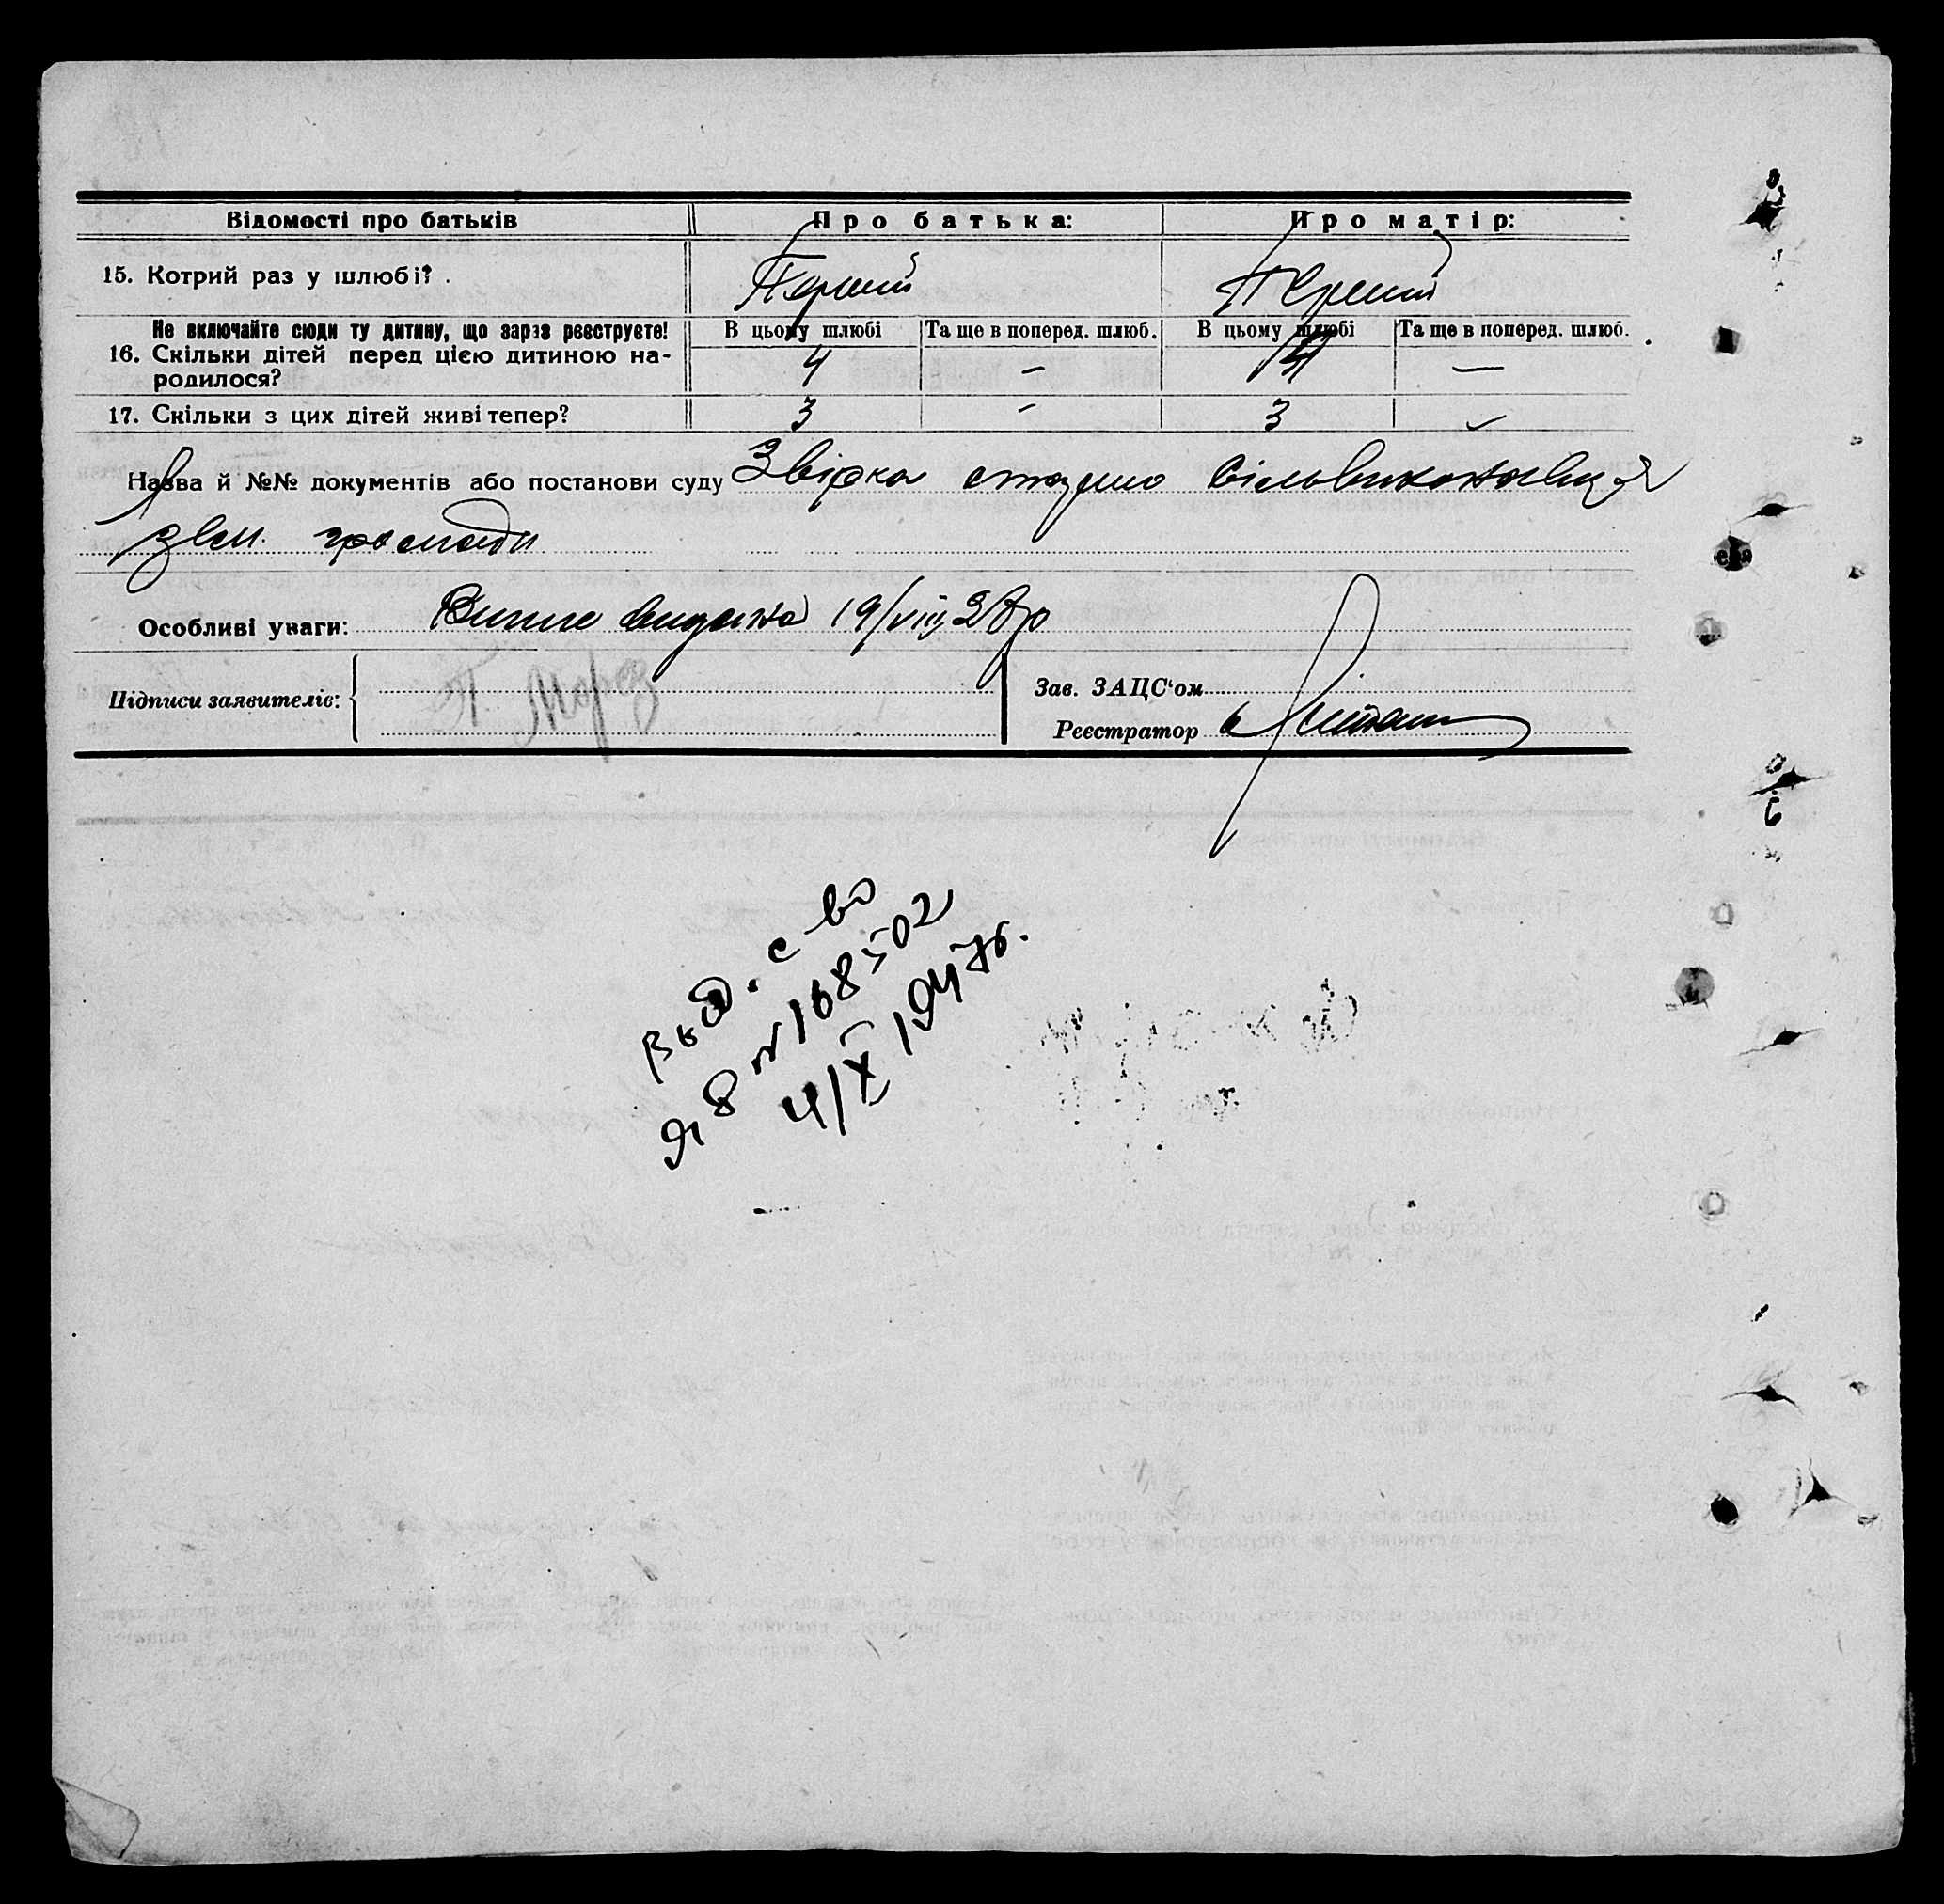 Відомості про батьків Про батька: Про матір:
15. Котрий раз у шлюбі? Перший Перший
Не включайте сюди ту дитину, що зараз реєструєте! В цьому шлюбі Та ще в поперед. шлюб. В цьому шлюбі Та ще в поперед. шлюб.
16. Скільки дітей перед цією дитиною на-
родилося? 4 — 4 —
17. Скільки з цих дітей живі тепер? 3 – 3 –
Назва й №№ документів або постанови суду Звірка
зем. громади
Особливі уваги: Випис видана 19/VIII 28 р
Підписи заявителів: П. Мороз
Зав. ЗАЦС'ом
Реєстратор
Выд. с-во
ЯІ 8 № 168502
4/X 1947г.